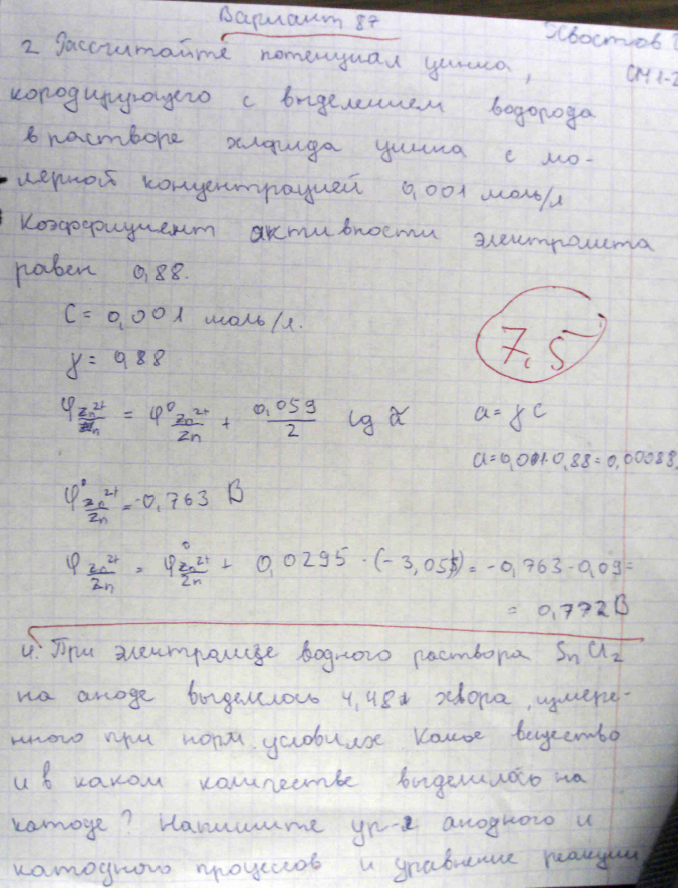 Вариант 87
Хвостов
СМ1-2
2 Рассчитайте потенциал цинка,
кородирующего с выделением водорода
в растворе хлорида цинка с мо-
лярной концентрацией 0,001 моль/л
Коэффициент активности электролита
равен 0,88.
C = 0,001 моль/л.
γ = 0,88
7,5
φ Zn²⁺/Zn = φ⁰ Zn²⁺/Zn + 0,059/2 lg a
a = γ C
a = 0,001·0,88 = 0,00088
φ⁰ Zn²⁺/Zn = -0,763 В
φ Zn²⁺/Zn = φ⁰ Zn²⁺/Zn + 0,0295 · (-3,055) = -0,763 - 0,09 =
= 0,772 В
4. При электролизе водного раствора SnCl₂
на аноде выделилось 4,48л хлора, измере-
нного при норм условиях Какое вещество
и в каком количестве выделилось на
катоде? Напишите ур-я анодного и
катодного процессов и уравнение реакции